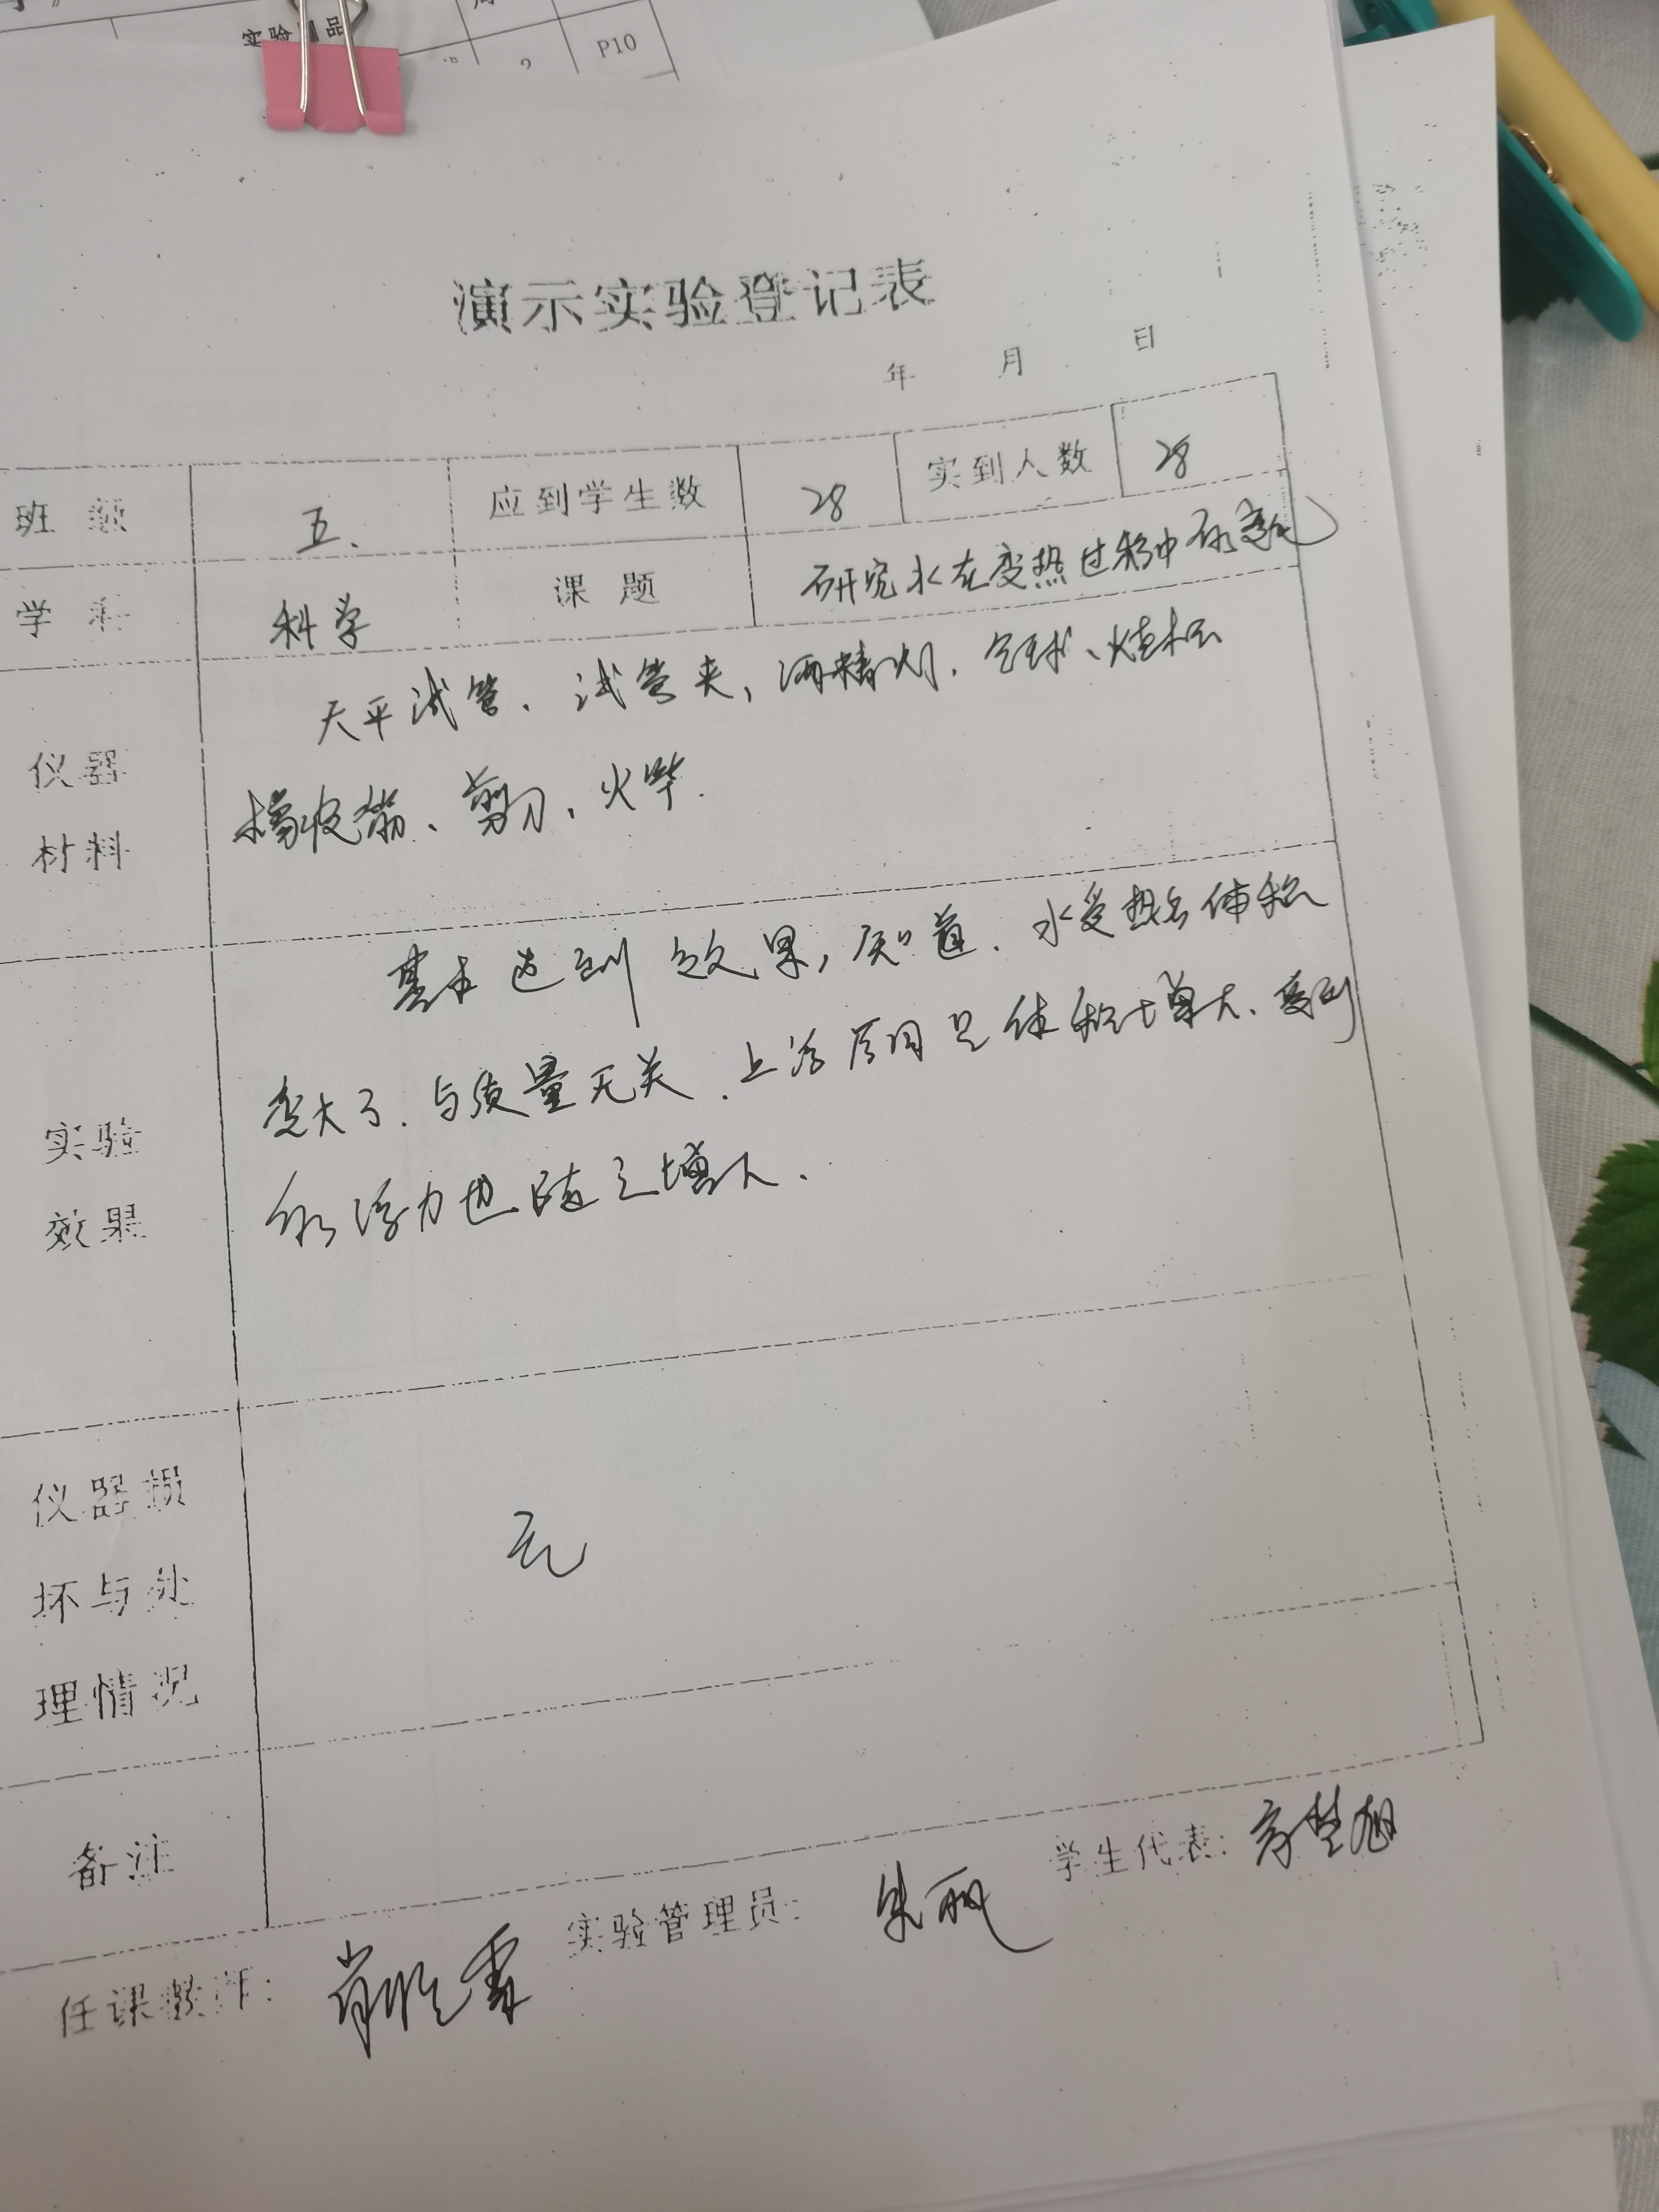 实验 品
P10
演示实验登记表
年 月 日
班级 五、 应到学生数 28 实到人数 28
学科 科学 课题 研究水在变热过程中的变化
仪器材料
天平试管、试管夹，酒精灯、气球、烧杯
橡皮筋、剪刀、火柴.
实验效果
基本达到效果，知道、水受热后体积
变大了.与质量无关.上浮原因是体积增大、受到
的浮力也随之增大.
仪器损坏与处理情况
无
备注
任课教师： 实验管理员： 朱丽 学生代表：